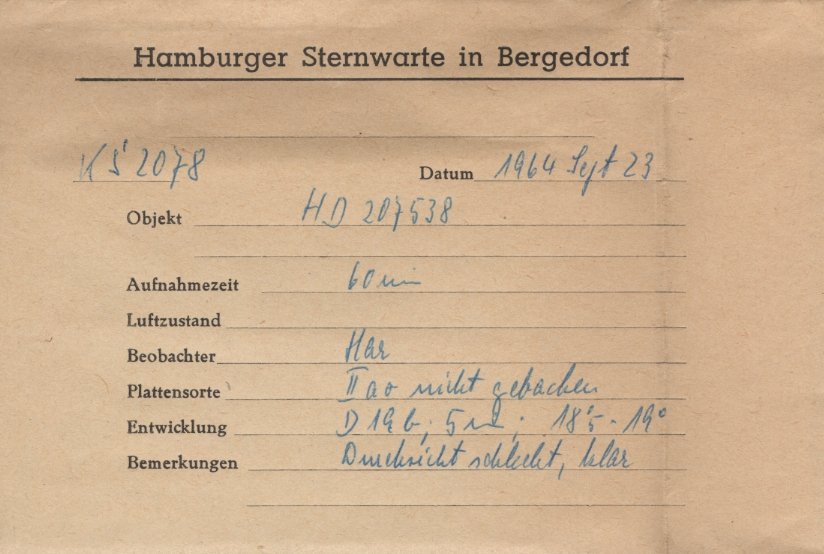 Hamburger Sternwarte in Bergedorf
KS 2078 Datum 1964 Sept 23
Objekt HD 207538
Aufnahmezeit 60 min
Luftzustand
Beobachter Har
Plattensorte II a o nicht gebacken
Entwicklung D 19 b; 5 min; 18°5 - 19°
Bemerkungen Durchsicht schlecht, klar